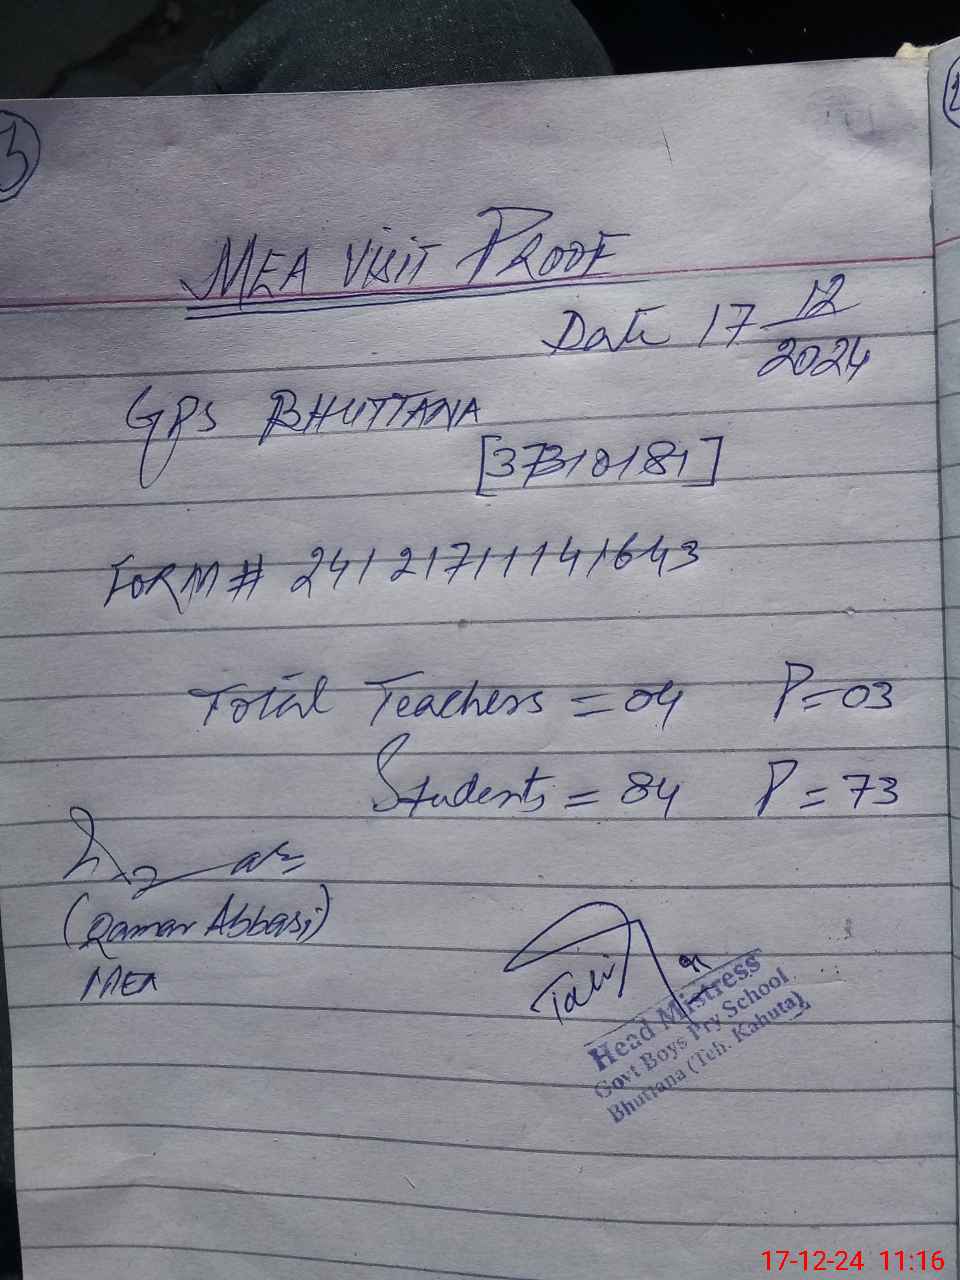 3
MEA VISIT PROOF
Date 17 12/2024
GPS BHUTTANA
[37310181]
FORM # 24121711141643
Total Teachers = 04 P = 03
Students = 84 P = 73
(Qamar Abbasi)
MEA
Head Mistress
Govt Boys Pry School
Bhuttana (Teh. Kahuta)
17-12-24 11:16